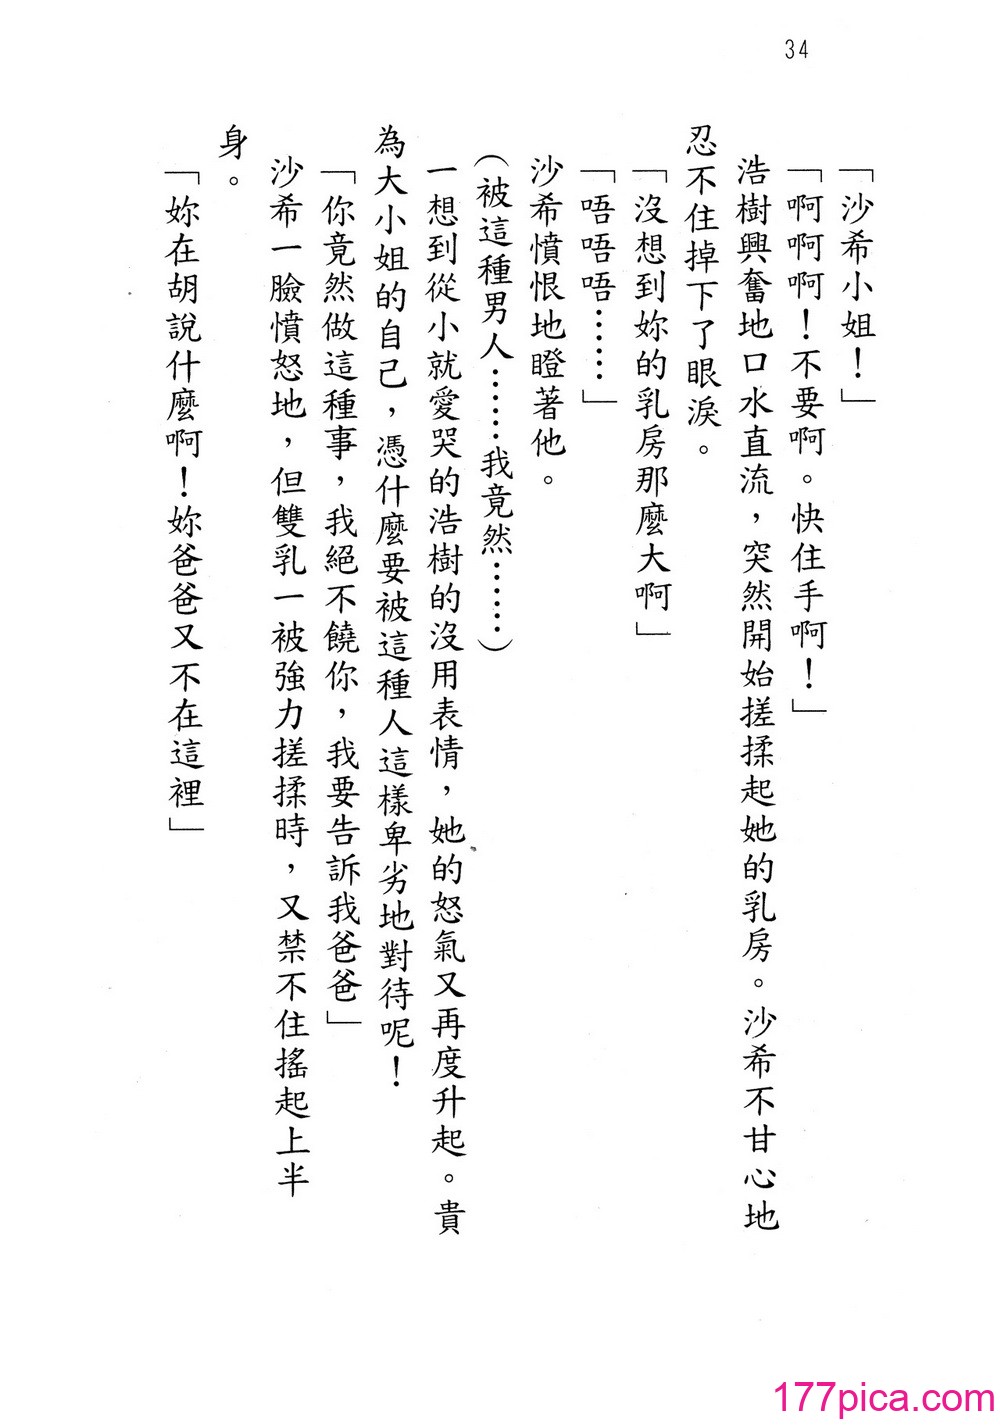 34
「沙希小姐！」
「啊啊啊！不要啊。快住手啊！」
浩樹興奮地口水直流，突然開始搓揉起她的乳房。沙希不甘心地
忍不住掉下了眼淚。
「沒想到妳的乳房那麼大啊」
「唔唔唔……」
沙希憤恨地瞪著他。
（被這種男人……我竟然……）
一想到從小就愛哭的浩樹的沒用表情，她的怒氣又再度升起。貴
為大小姐的自己，憑什麼要被這種人這樣卑劣地對待呢！
「你竟然做這種事，我絕不饒你，我要告訴我爸爸」
沙希一臉憤怒地，但雙乳一被強力搓揉時，又禁不住搖起上半
身。
「妳在胡說什麼啊！妳爸爸又不在這裡」
177pica.com